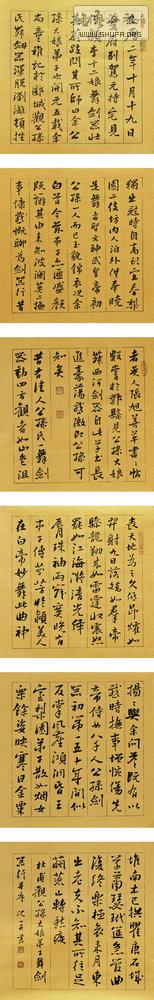 WWW.SHUFA.ORG
二年十月十九日
夔府別駕元持宅見
臨潁李十二娘舞劍器壯
其蔚跂問其所師曰余公
孫大娘弟子也開元五載余
尚童稚記於郾城觀公孫
氏舞劍器渾脫瀏漓頓挫
獨出冠時自高頭宜春梨
園二伎坊內人洎外供奉曉
是舞者聖文神武皇帝初
公孫一人而已玉貌錦衣況余
白首今茲弟子亦匪盛顏
既辨其由來知波瀾莫二撫
事慷慨聊為劍器行昔
者吳人張旭善草書書帖
數嘗於鄴縣見公孫大娘
舞西河劍器自此草書長
進豪蕩感激即公孫可
知矣
昔有佳人公孫氏一舞劍
器動四方觀者如山色沮
喪天地為之久低昂㸌如
羿射九日落矯如群帝
驂龍翔來如雷霆收震怒
罷如江海凝清光絳
唇珠袖兩寂寞晚有
弟子傳芬芳臨潁美人
在白帝妙舞此曲神
揚揚與余問答既有以
感時撫事增惋傷先
帝侍女八千人公孫劍
器初第一五十年間似
反掌風塵澒洞昏王
室梨園弟子散如煙女
樂餘姿映寒日金粟
堆南木已拱瞿唐石城
草蕭瑟玳筵急管曲
復終樂極哀來月東
出老夫不知其所往足
繭荒山轉愁疾
杜甫觀公孫大娘弟子舞劍
器行并序